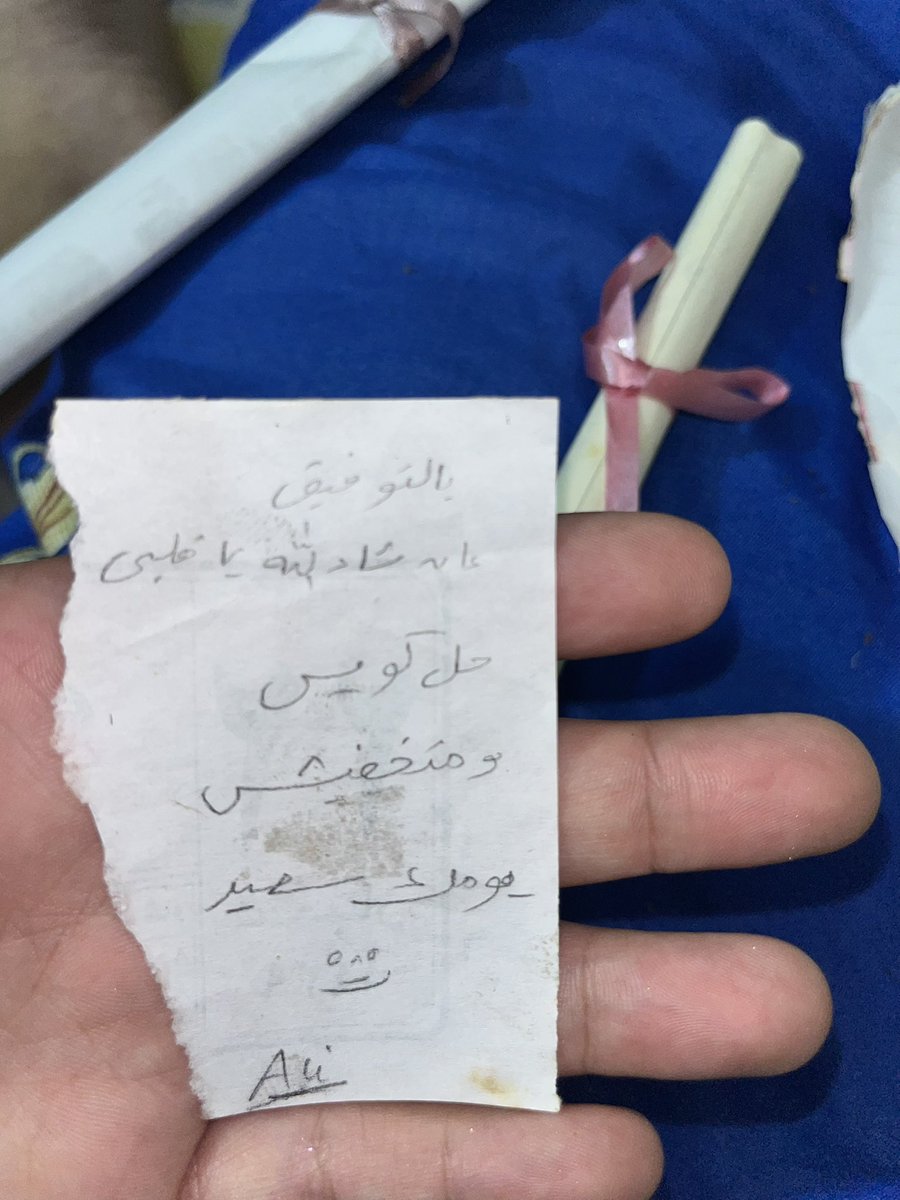 بالتوفيق
ان شاد لله يا قلبى
حل كويس
و متخفش
يومك سعيد
Ali